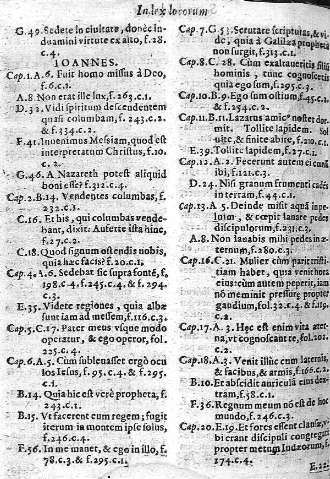 Index locorum
G.49. Sedete in ciuitate, donec in-
duamini virtute ex alto, f.28.
c.4.
IOANNES.
Cap.1.A.6. Fuit homo missus à Deo,
f.6.c.1.
A.8. Non erat ille lux, f.263.c.1.
D.32. Vidi spiritum descendentem
quasi columbam, f.243.c.2.
& f.334.c.2.
F.41. Inuenimus Messiam, quod est
interpretatum Christus, f.10.
c.2.
G.46. A Nazareth potest aliquid
boni esse? f.312.c.4.
Cap.2.B.14. Vendentes columbas, f.
232.c.1.
C.16. Et his, qui columbas vende-
bant, dixit: Auferte ista hinc,
f.27.c.2.
C.18. Quod signum ostendis nobis,
quia hæc facis? f.20.c.1.
Cap.4.A.6. Sedebat sic supra fontē, f.
198.c.4. f.245.c.4. & f.294.
c.3.
E.35. Videte regiones, quia albæ
sunt iam ad messem, f.116.c.3.
Cap.5.C.17. Pater meus vsque modo
operatur, & ego operor, fol.
225.c.4.
Cap.6.A.5. Cum subleuasset ergò ocu
los Iesus, f.95.c.4. & f.295.
c.1.
B.14. Quia hic est verè propheta, f.
243.c.1.
B.15. Vt facerent eum regem; fugit
iterum in montem ipse solus,
f.246.c.4.
F.56. In me manet, & ego in illo, f.
78.c.3. & f.295.c.1.
Cap.7.G.53. Scrutare scripturas, & vi-
de, quia à Galilæa propheta
non surgit, f.313.c.1.
Cap.8.C.28. Cum exaltaueritis filiū
hominis, tunc cognoscetis
quia ego sum, f.295.c.3.
Cap.10.B.9. Ego sum ostium, f.45.c.1.
& f.294.c.2.
Cap.11.B.11. Lazarus amicꝰ noster dor-
mit. Tollite lapidem. Sol
uite, & sinite abire, f.210.c.1.
E.39. Tollite lapidem, f.27.c.1.
Cap.12.A.2. Fecerunt autem ei cœnā
ibi, f.121.c.3.
D.24. Nisi granum frumenti cadēs
in terram, f.44.c.1.
Cap.13.A.5. Deinde misit aquā in pe-
luim, & cœpit lauare pedes
discipulorum, f.231.c.3.
A.8. Non lauabis mihi pedes in æ-
ternum, f.280.c.3.
Cap.16.C.21. Mulier cùm parit tristi-
tiam habet, quia venit hora
eius: cùm autem peperit, iam
nō meminit pressuræ propter
gaudium, fol.32.c.4. & f.119.
c.2.
Cap.17.A.3. Hęc est enim vita æter-
na, vt cognoscant te, fol.202.
c.2.
Cap.18.A.3. Venit illuc cum laternis,
& facibus, & armis, f.166.c.2.
B.10. Et abscidit auriculā eius dex-
tram, f.58.c.1.
F.36. Regnum meum nō est de hoc
mundo, f.246.c.3.
Cap.20.E.19. Et fores essent clausæ, v-
bi erant discipuli congregati
propter metum Iudæorum, f.
174.c.4.